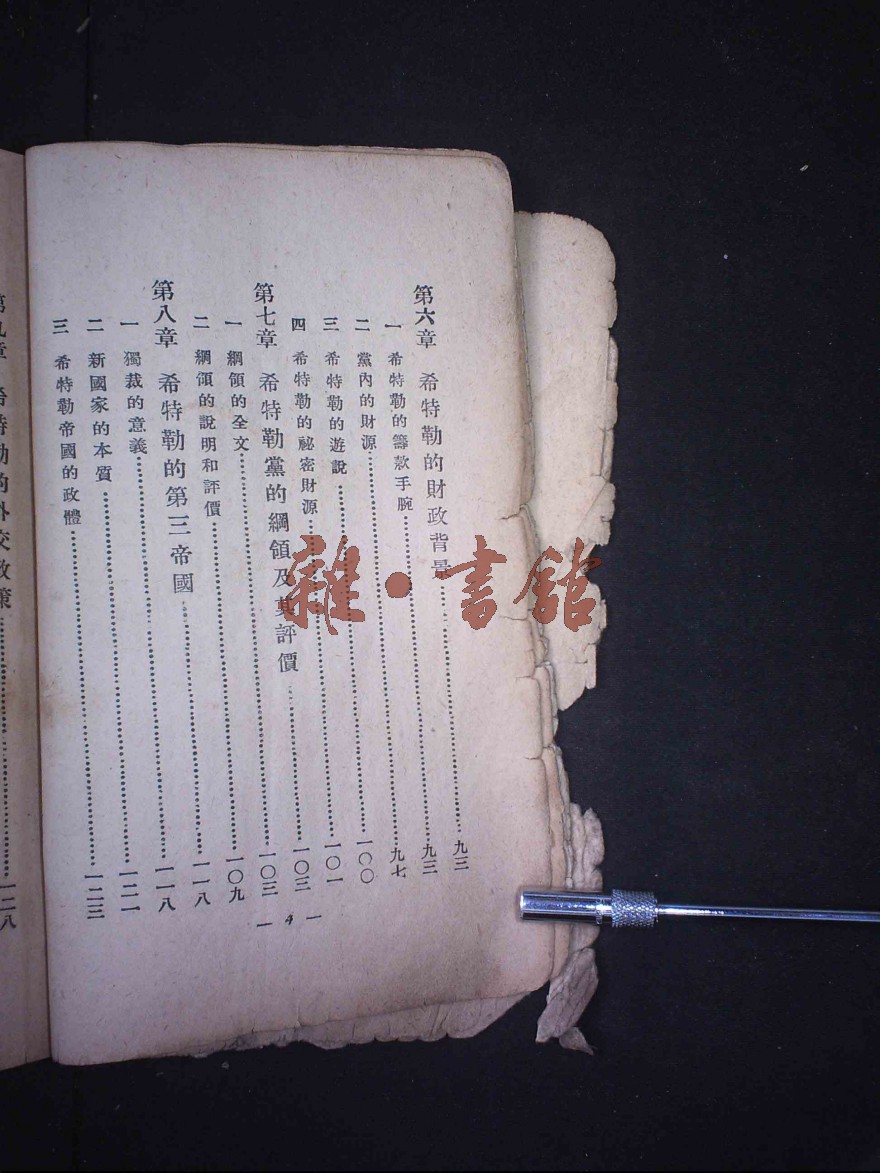 第六章 希特勒的財政背景……九三
一 希特勒的籌款手腕……九三
二 黨內的財源……九七
三 希特勒的遊說……一〇〇
四 希特勒的祕密財源……一〇一
第七章 希特勒黨的綱領及其評價……一〇三
一 綱領的全文……一〇三
二 綱領的說明和評價……一〇九
第八章 希特勒的第三帝國……一一八
一 獨裁的意義……一一八
二 新國家的本質……一二一
三 希特勒帝國的政體……一二三
— 4 —
第九章 希特勒的外交政策……一二八
雜·書館